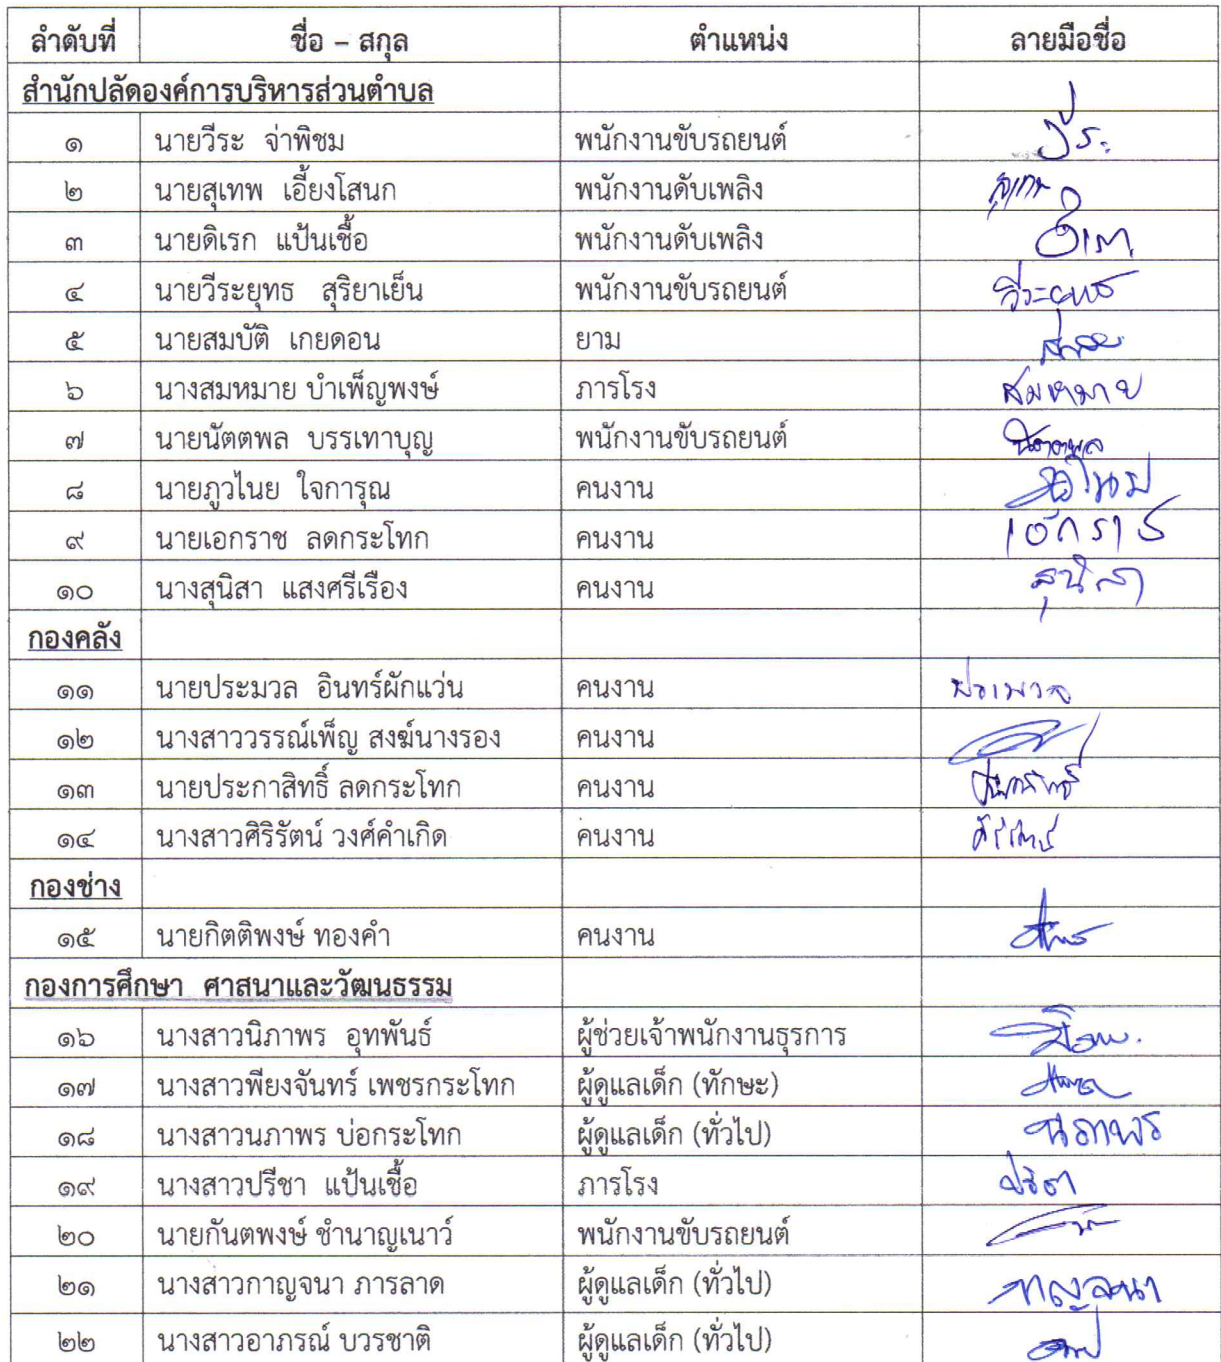 ลำดับที่ ชื่อ – สกุล ตำแหน่ง ลายมือชื่อ
สำนักปลัดองค์การบริหารส่วนตำบล
๑ นายวีระ จ่าพิชม พนักงานขับรถยนต์ วีระ
๒ นายสุเทพ เอี้ยงโสนก พนักงานดับเพลิง สุเทพ
๓ นายดิเรก แป้นเชื้อ พนักงานดับเพลิง
๔ นายวีระยุทธ สุริยาเย็น พนักงานขับรถยนต์ วีระยุทธ
๕ นายสมบัติ เกยดอน ยาม
๖ นางสมหมาย บำเพ็ญพงษ์ ภารโรง สมหมาย
๗ นายนัตตพล บรรเทาบุญ พนักงานขับรถยนต์
๘ นายภูวไนย ใจการุณ คนงาน
๙ นายเอกราช ลดกระโทก คนงาน เอกราช
๑๐ นางสุนิสา แสงศรีเรือง คนงาน สุนิสา
กองคลัง
๑๑ นายประมวล อินทร์ผักแว่น คนงาน ประมวล
๑๒ นางสาววรรณ์เพ็ญ สงฆ์นางรอง คนงาน
๑๓ นายประกาสิทธิ์ ลดกระโทก คนงาน
๑๔ นางสาวศิริรัตน์ วงศ์คำเกิด คนงาน ศิริรัตน์
กองช่าง
๑๕ นายกิตติพงษ์ ทองคำ คนงาน
กองการศึกษา ศาสนาและวัฒนธรรม
๑๖ นางสาวนิภาพร อุทพันธ์ ผู้ช่วยเจ้าพนักงานธุรการ
๑๗ นางสาวพียงจันทร์ เพชรกระโทก ผู้ดูแลเด็ก (ทักษะ)
๑๘ นางสาวนภาพร บ่อกระโทก ผู้ดูแลเด็ก (ทั่วไป) นภาพร
๑๙ นางสาวปรีชา แป้นเชื้อ ภารโรง ปรีชา
๒๐ นายกันตพงษ์ ชำนาญเนาว์ พนักงานขับรถยนต์
๒๑ นางสาวกาญจนา ภารลาด ผู้ดูแลเด็ก (ทั่วไป) กาญจนา
๒๒ นางสาวอาภรณ์ บวรชาติ ผู้ดูแลเด็ก (ทั่วไป)